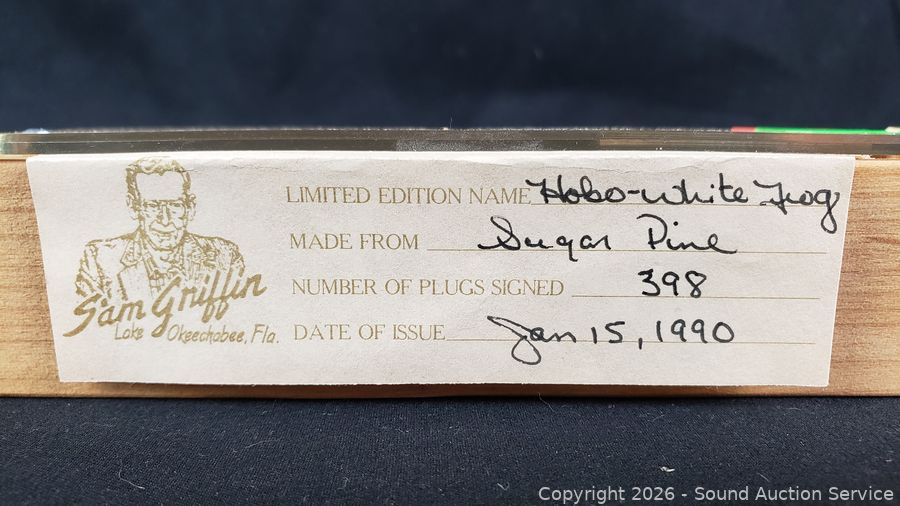 LIMITED EDITION NAME Hobo-White Frog
MADE FROM Sugar Pine
NUMBER OF PLUGS SIGNED 398
DATE OF ISSUE Jan 15, 1990
Sam Griffin
Lake Okeechobee, Fla.
Copyright © 2026 - Sound Auction Service